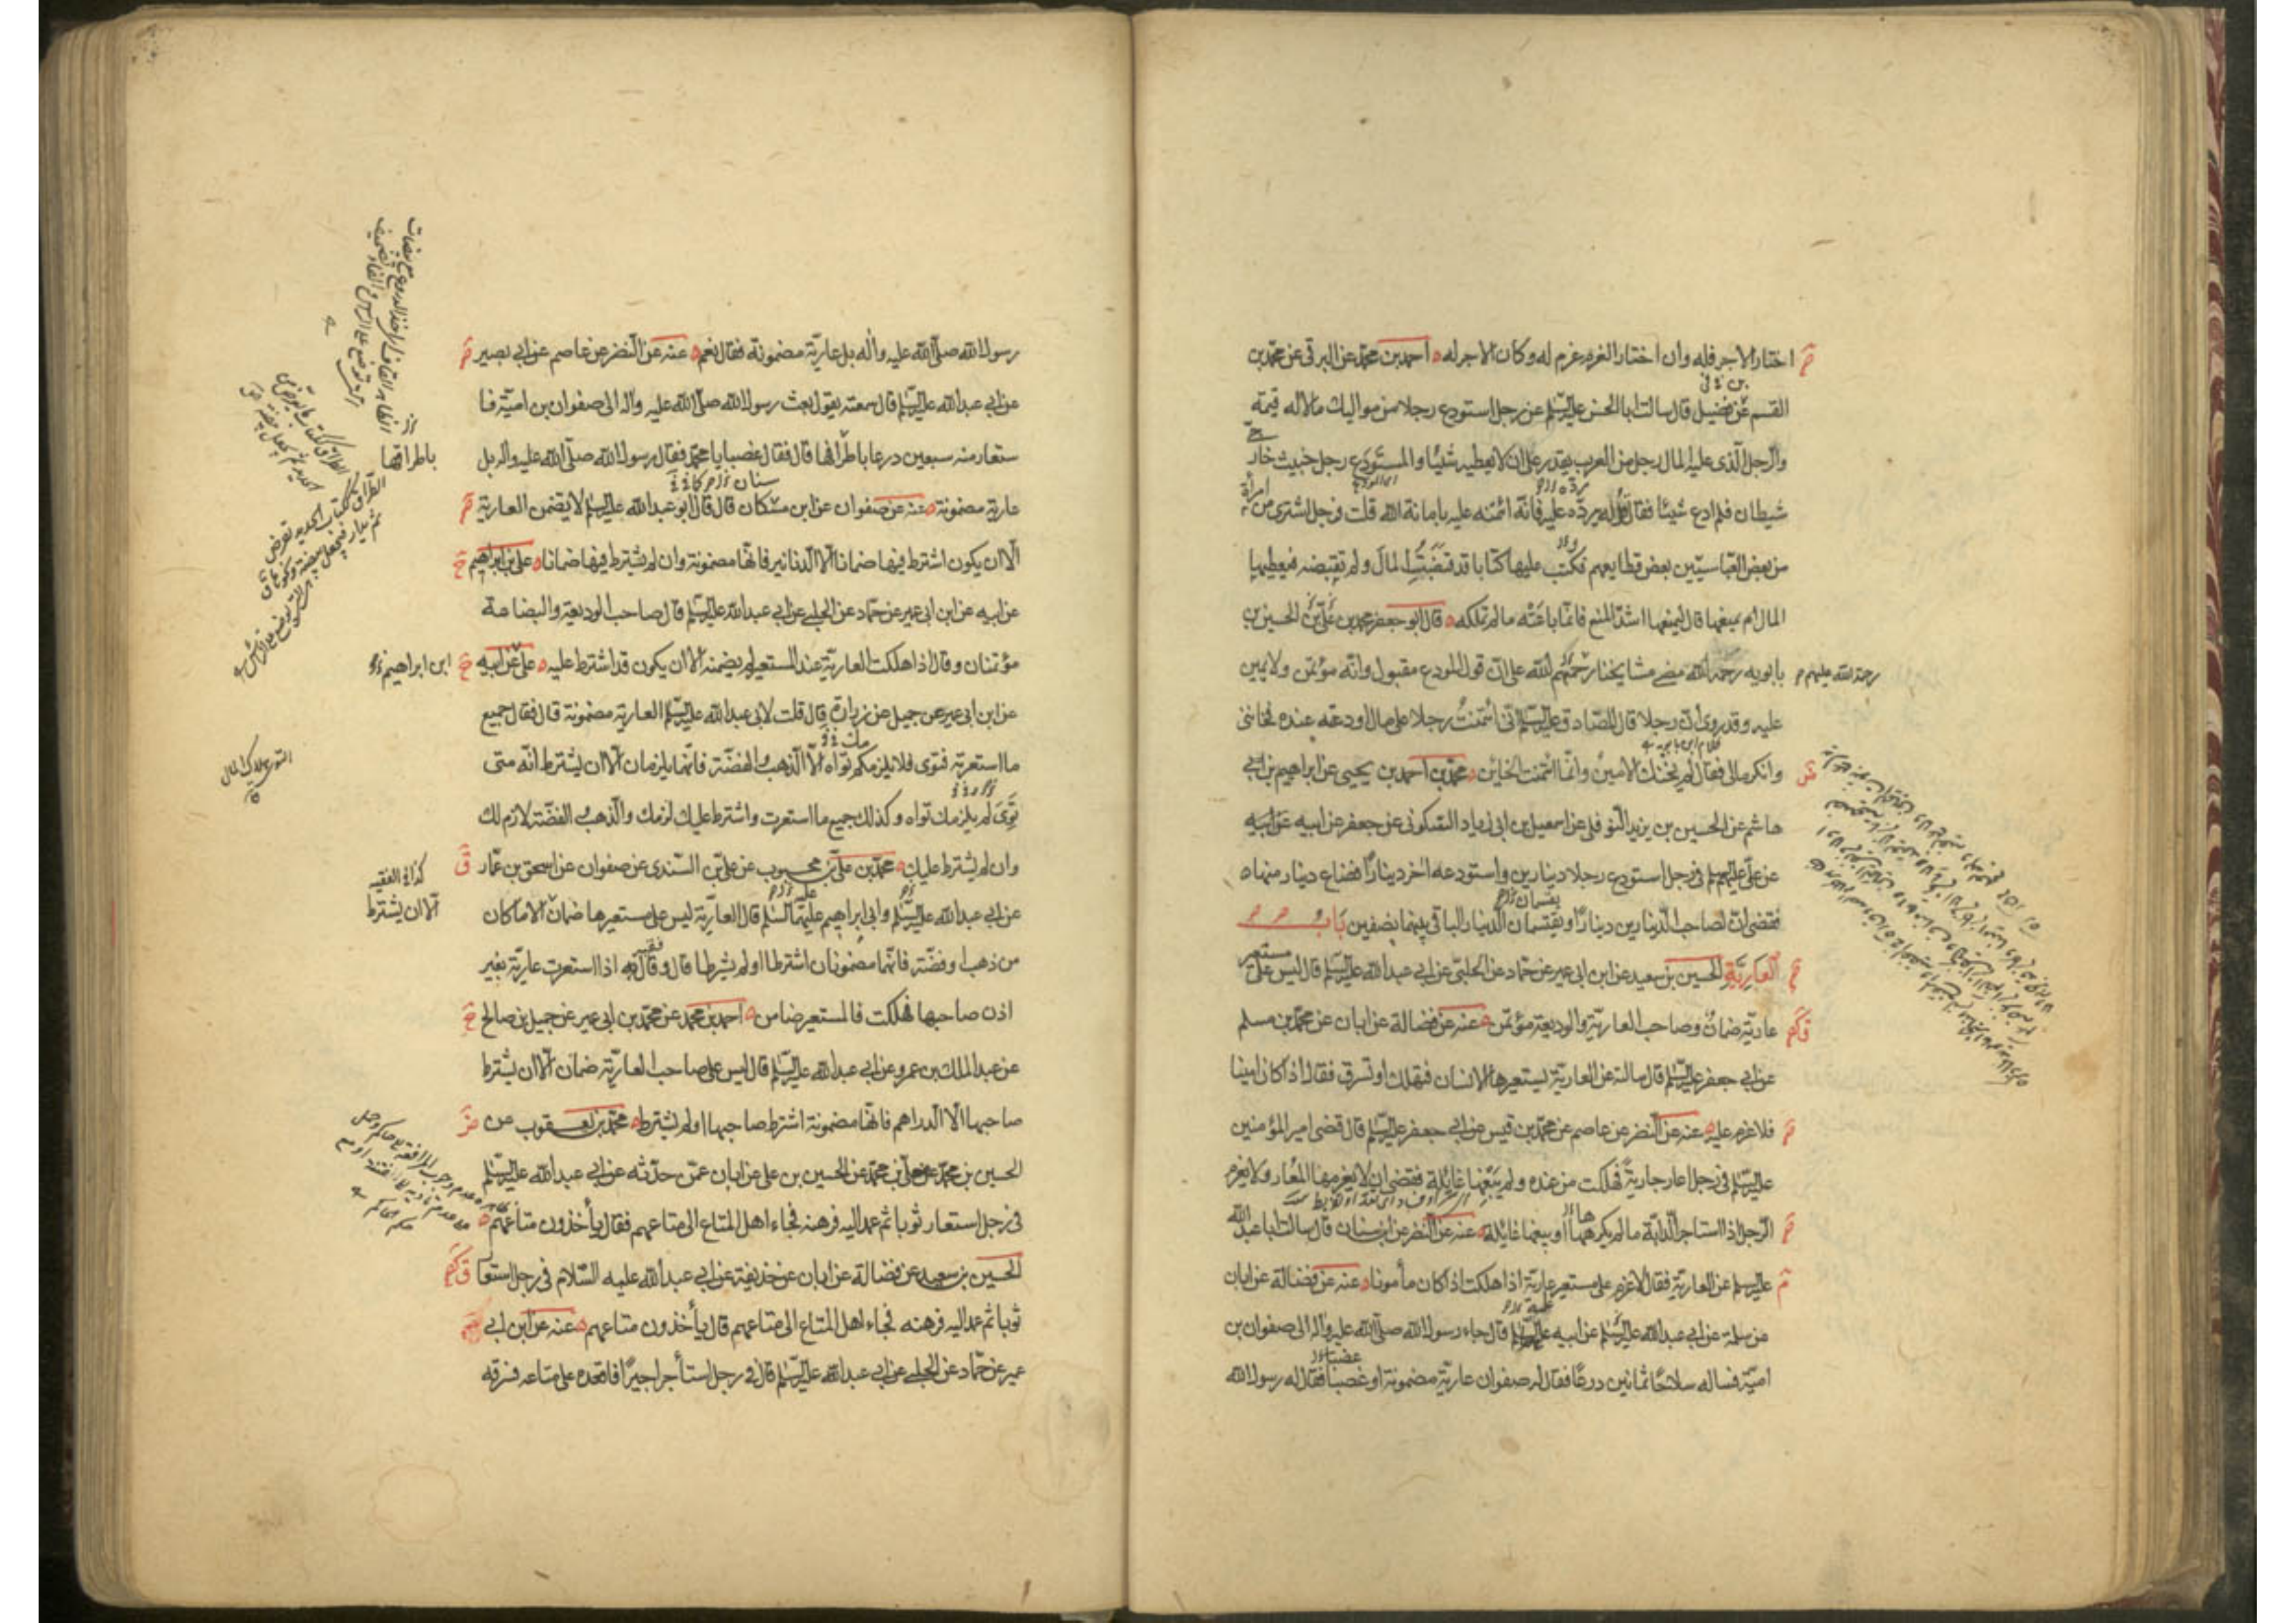 اختار الاجر فله وان اختار الغرم غرم له وكان الاجر له احمد بن محمد عن البرقى عن محمد بن
القسم عن فضيل قال سالت ابا الحسن عليه السلم عن رجل استودع رجلا من مواليك مالا له قيمة
والرجل الذى عليه المال رجل من العرب يقدر على ان لا يعطيه شيئا والمستودع رجل خبيث خارجى
شيطان فلم ادع شيئا فقال قل له يرده عليه فانه ائتمنه عليه بامانة الله قلت فرجل اشترى من امرأة
من بعض العباسيين بعض قطايعهم فكتب عليها كتابا قد قبضت المال ولم تقبضه فيعطيها
المال ام يمنعها قال ليمنعها اشد المنع فانما باعته ما لم تملكه قال ابو جعفر محمد بن على بن الحسين بن
بابويه رحمه الله مضى مشايخنا رحمهم الله على ان قول المودع مقبول وانه مؤتمن ولا يمين
رحمة الله عليهم
عليه وقد روى ان رجلا قال للصادق عليه السلم انى ائتمنت رجلا على مال اودعته عنده فخاننى
وانكر مالى فقال لم يخنك الامين وانما ائتمنت الخاين محمد بن احمد بن يحيى عن ابراهيم بن
هاشم عن الحسين بن يزيد النوفلى عن اسمعيل بن ابى زياد السكونى عن جعفر عن ابيه عن ابيه
عن على عليهم السلم فى رجل استودع رجلا دينارين واستودعه اخر دينارا فضاع دينار منها
فقضى ان لصاحب الدينارين دينارا ويقتسمان الدينار الباقى بينهما نصفين باب
العارية الحسين بن سعيد عن ابن ابى عمير عن حماد عن الحلبى عن ابى عبد الله عليه السلم قال ليس على مستعير
عارية ضمان وصاحب العارية والوديعة مؤتمن عنه عن فضالة عن ابان عن محمد بن مسلم
عن ابى جعفر عليه السلم قال سالته عن العارية يستعيرها الانسان فتهلك او تسرق فقال اذا كان امينا
فلا غرم عليه عنه عن النضر عن عاصم عن محمد بن قيس عن ابى جعفر عليه السلم قال قضى امير المؤمنين
عليه السلم فى رجل اعار جارية فهلكت من عنده ولم يبغها غايلة فقضى ان لا يغرمها المعار ولا يغرم
الرجل اذا استاجر الدابة ما لم يكرهها او يبغها غايلة عنه عن النضر عن ابن سنان قال سالت ابا عبد الله
عليه السلم عن العارية فقال لا غرم على مستعير عارية اذا هلكت اذا كان مأمونا عنه عن فضالة عن ابان
عن سلمة عن ابى عبد الله عليه السلم عن ابيه عليه السلم قال جاء رسول الله صلى الله عليه واله الى صفوان بن
امية فساله سلاحا ثمانين درعا فقال له صفوان عارية مضمونة او غصبا فقال له رسول الله
رسول الله صلى الله عليه واله بل عارية مضمونة فقال نعم عنه عن النضر عن عاصم عن ابى بصير
عن ابى عبد الله عليه السلم قال سمعته يقول بعث رسول الله صلى الله عليه واله الى صفوان بن امية فا
ستعار منه سبعين درعا باطراقها قال فقال غصبا يا محمد فقال رسول الله صلى الله عليه واله بل
باطراقها
عارية مضمونة عنه عن صفوان عن ابن مسكان قال قال ابو عبد الله عليه السلم لا يضمن العارية
الا ان يكون اشترط فيها ضمانا الا الدنانير فانها مضمونة وان لم يشترط فيها ضمانا على بن ابراهيم
عن ابيه عن ابن ابى عمير عن حماد عن الحلبى عن ابى عبد الله عليه السلم قال صاحب الوديعة والبضاعة
مؤتمنان وقال اذا هلكت العارية عند المستعير لم يضمنه الا ان يكون قد اشترط عليه على عن ابيه
ابن ابراهيم
عن ابن ابى عمير عن جميل عن زرارة قال قلت لابى عبد الله عليه السلم العارية مضمونة قال فقال جميع
ما استعرته فتوى فلا يلزمكم تواه الا الذهب والفضة فانهما يلزمان الا ان يشترط انه متى
توى لم يلزمك تواه وكذلك جميع ما استعرت واشترط عليك لزمك والذهب والفضة لازم لك
وان لم يشترط عليك محمد بن على بن محبوب عن على بن السندى عن صفوان عن اسحق بن عمار
كذا فى الفقيه
الا ان يشترط
عن ابى عبد الله عليه السلم وابى ابراهيم عليهما السلم قال العارية ليس على مستعيرها ضمان الا ما كان
من ذهب او فضة فانهما مضمونان اشترطا او لم يشرطا قال وقال اذا استعرت عارية بغير
اذن صاحبها فهلكت فالمستعير ضامن احمد بن محمد عن محمد بن ابى عمير عن جميل بن صالح
عن عبد الملك بن عمرو عن ابى عبد الله عليه السلم قال ليس على صاحب العارية ضمان الا ان يشترط
صاحبها الا الدراهم فانها مضمونة اشترط صاحبها او لم يشترط محمد بن يعقوب عن
الحسين بن محمد عن معلى بن محمد عن الحسين بن على عن ابان عمن حدثه عن ابى عبد الله عليه السلم
فى رجل استعار ثوبا ثم عمد اليه فرهنه فجاء اهل المتاع الى متاعهم فقال يأخذون متاعهم
الحسين بن سعيد عن فضالة عن ابان عن حذيفة عن ابى عبد الله عليه السلام فى رجل استعا
ثوبا ثم عمد اليه فرهنه فجاء اهل المتاع الى متاعهم قال يأخذون متاعهم عنه عن ابن ابى
عمير عن حماد عن الحلبى عن ابى عبد الله عليه السلم قال فى رجل استأجر اجيرا فاقعده على متاعه فسرقه